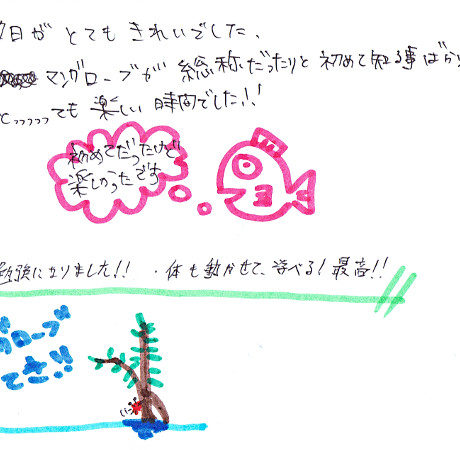 夕日が とても きれいでした。
マングローブが 総称だったりと 初めて知る事ばかり
とっっっっっても 楽しい 時間でした!!
初めてだったけど
楽しかったです
勉強になりました!! ・体も動かせて、学べる!最高!!
グローブ
てき!!